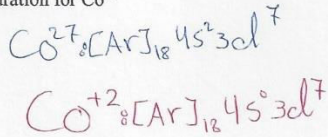 ration for Co
Co²⁷:[Ar]₁₈ 4s² 3d⁷
Co⁺²:[Ar]₁₈ 4s⁰ 3d⁷